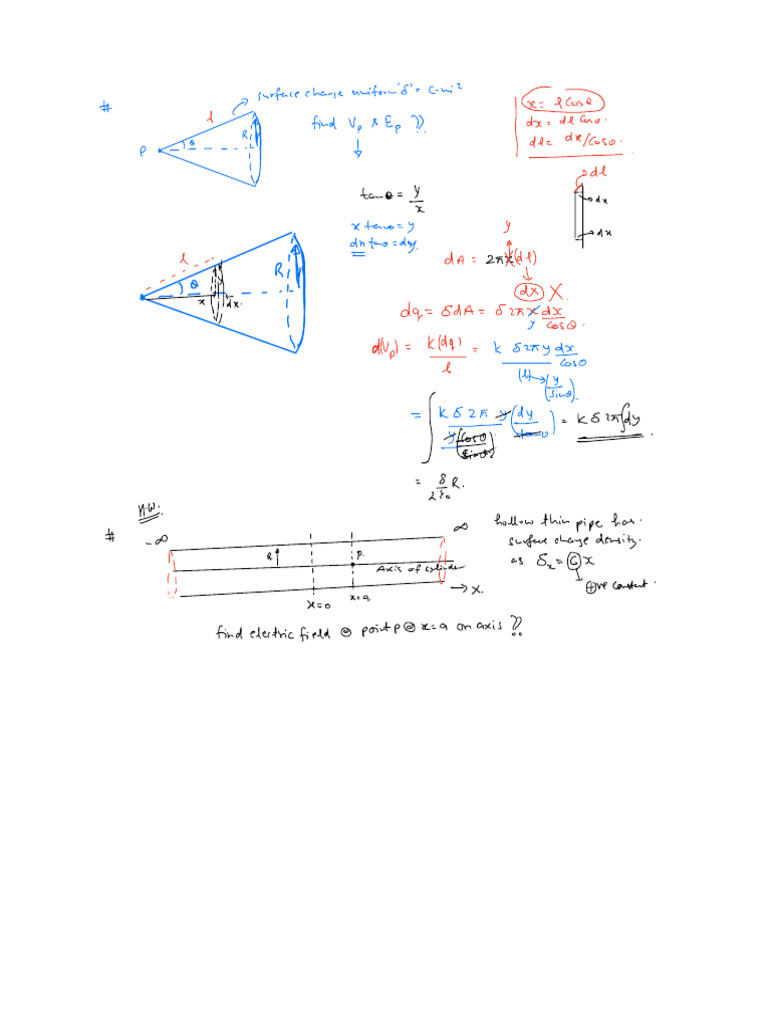 #
surface charge uniform 'δ' = C-m²
find Vp & Ep ??
l
R
P
θ
x = l Cosθ.
dx = dl Cosθ.
dl = dx/Cosθ.
dl
dx
dx
tanθ = y/x
x tanθ = y
dx tanθ = dy.
l
R
θ
x
dx.
y
dA = 2πx(dl)
dx X
dq = δdA = δ2πx dx/Cosθ.
y
d(Vp) = k(dq)/l = k δ2πy dx/Cosθ
(l) → (y/sinθ).
= ∫ k δ 2π y (dy/tanθ) / y(Cosθ/sinθ) = k δ 2π∫dy.
= δ/2ε₀ R.
H.W.
#
-∞
∞
R
P.
Axis of cylinder
x=0
x=a
→ x.
hollow thin pipe has.
surface charge density.
as δx = C x
⊕ve constant.
find electric field @ point P @ x=a on axis ??